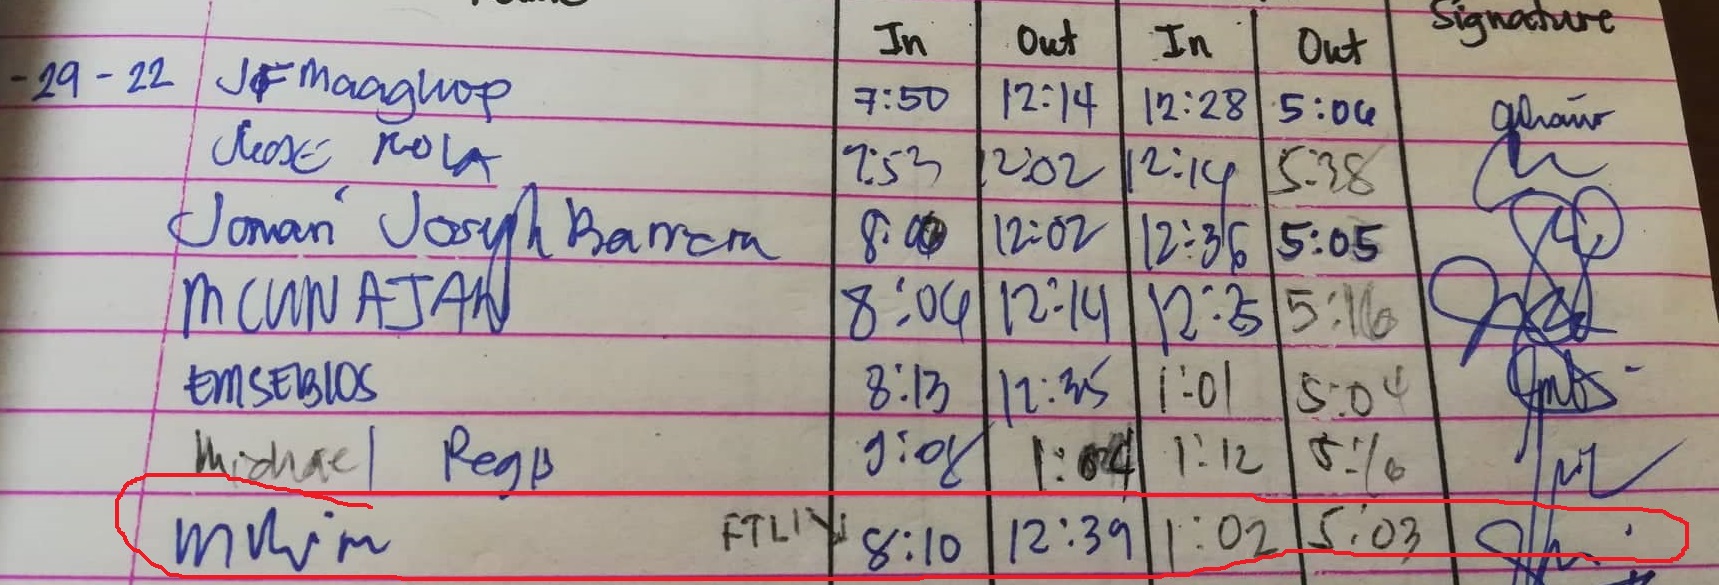 In Out In Out Signature
-29-22 JF Maaghop 7:50 12:14 12:28 5:06
Rose 7:53 12:02 12:14 5:38
Joseph Barrera 8:00 12:02 12:36 5:05
8:04 12:14 12:25 5:16
EMSEBIOS 8:13 12:35 1:01 5:04
Michael 9:08 1:04 1:12 5:16
8:10 12:39 1:02 5:03